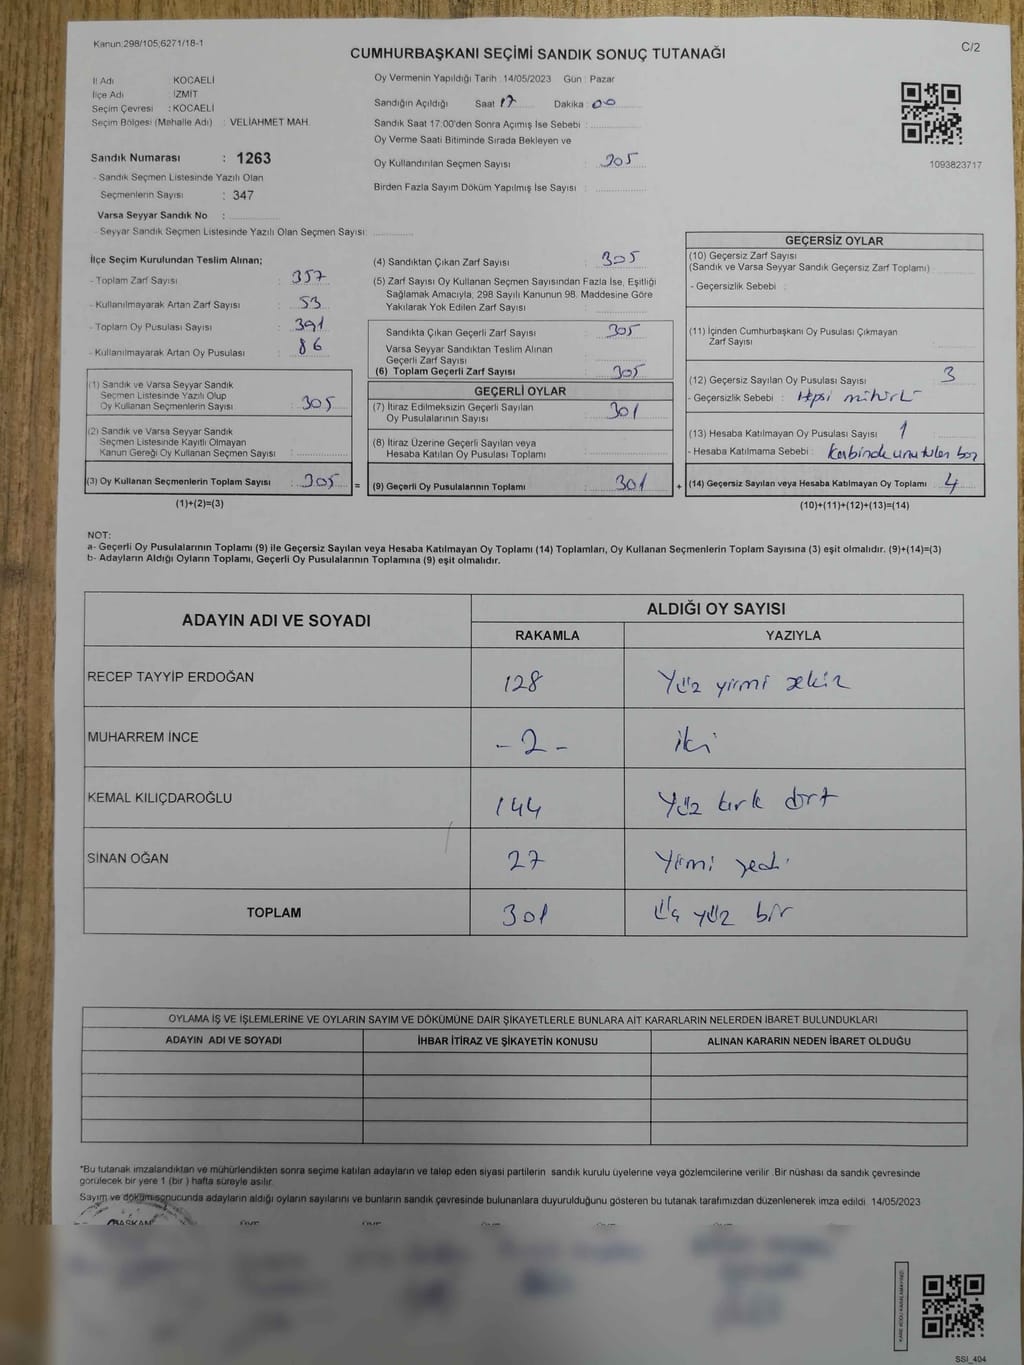 Kanun:298/105;6271/18-1
C/2
CUMHURBAŞKANI SEÇİMİ SANDIK SONUÇ TUTANAĞI
İl Adı KOCAELİ
İlçe Adı : İZMİT
Seçim Çevresi : KOCAELİ
Seçim Bölgesi (Mahalle Adı) : VELİAHMET MAH.
Sandık Numarası : 1263
- Sandık Seçmen Listesinde Yazılı Olan
Seçmenlerin Sayısı : 347
Varsa Seyyar Sandık No :
- Seyyar Sandık Seçmen Listesinde Yazılı Olan Seçmen Sayısı:
Oy Vermenin Yapıldığı Tarih : 14/05/2023 Gün : Pazar
Sandığın Açıldığı Saat 17 Dakika : 00
Sandık Saat 17:00'den Sonra Açımış İse Sebebi :
Oy Verme Saati Bitiminde Sırada Bekleyen ve
Oy Kullandırılan Seçmen Sayısı : 305
Birden Fazla Sayım Döküm Yapılmış İse Sayısı :
1093823717
İlçe Seçim Kurulundan Teslim Alınan;
- Toplam Zarf Sayısı : 357
- Kullanılmayarak Artan Zarf Sayısı : 53
- Toplam Oy Pusulası Sayısı : 391
- Kullanılmayarak Artan Oy Pusulası : 86
(1) Sandık ve Varsa Seyyar Sandık
Seçmen Listesinde Yazılı Olup
Oy Kullanan Seçmenlerin Sayısı : 305
(2) Sandık ve Varsa Seyyar Sandık
Seçmen Listesinde Kayıtlı Olmayan
Kanun Gereği Oy Kullanan Seçmen Sayısı :
(3) Oy Kullanan Seçmenlerin Toplam Sayısı : 305 =
(1)+(2)=(3)
(4) Sandıktan Çıkan Zarf Sayısı : 305
(5) Zarf Sayısı Oy Kullanan Seçmen Sayısından Fazla İse, Eşitliği
Sağlamak Amacıyla, 298 Sayılı Kanunun 98. Maddesine Göre
Yakılarak Yok Edilen Zarf Sayısı :
Sandıkta Çıkan Geçerli Zarf Sayısı : 305
Varsa Seyyar Sandıktan Teslim Alınan
Geçerli Zarf Sayısı :
(6) Toplam Geçerli Zarf Sayısı : 305
GEÇERLİ OYLAR
(7) İtiraz Edilmeksizin Geçerli Sayılan
Oy Pusulalarının Sayısı : 301
(8) İtiraz Üzerine Geçerli Sayılan veya
Hesaba Katılan Oy Pusulası Toplamı :
(9) Geçerli Oy Pusulalarının Toplamı : 301 +
GEÇERSİZ OYLAR
(10) Geçersiz Zarf Sayısı
(Sandık ve Varsa Seyyar Sandık Geçersiz Zarf Toplamı) :
- Geçersizlik Sebebi :
(11) İçinden Cumhurbaşkanı Oy Pusulası Çıkmayan
Zarf Sayısı :
(12) Geçersiz Sayılan Oy Pusulası Sayısı : 3
- Geçersizlik Sebebi : Hepsi mühürlü
(13) Hesaba Katılmayan Oy Pusulası Sayısı : 1
- Hesaba Katılmama Sebebi : kabinde unutulan
(14) Geçersiz Sayılan veya Hesaba Katılmayan Oy Toplamı : 4
(10)+(11)+(12)+(13)=(14)
NOT:
a- Geçerli Oy Pusulalarının Toplamı (9) ile Geçersiz Sayılan veya Hesaba Katılmayan Oy Toplamı (14) Toplamları, Oy Kullanan Seçmenlerin Toplam Sayısına (3) eşit olmalıdır. (9)+(14)=(3)
b- Adayların Aldığı Oyların Toplamı, Geçerli Oy Pusulalarının Toplamına (9) eşit olmalıdır.
ADAYIN ADI VE SOYADI ALDIĞI OY SAYISI
RAKAMLA YAZIYLA
RECEP TAYYİP ERDOĞAN 128 Yüz yirmi sekiz
MUHARREM İNCE - 2 - iki
KEMAL KILIÇDAROĞLU 144 Yüz kırk dört
SİNAN OĞAN 27 Yirmi yedi
TOPLAM 301 Üç yüz bir
OYLAMA İŞ VE İŞLEMLERİNE VE OYLARIN SAYIM VE DÖKÜMÜNE DAİR ŞİKAYETLERLE BUNLARA AİT KARARLARIN NELERDEN İBARET BULUNDUKLARI
ADAYIN ADI VE SOYADI İHBAR İTİRAZ VE ŞİKAYETİN KONUSU ALINAN KARARIN NEDEN İBARET OLDUĞU
*Bu tutanak imzalandıktan ve mühürlendikten sonra seçime katılan adayların ve talep eden siyasi partilerin sandık kurulu üyelerine veya gözlemcilerine verilir. Bir nüshası da sandık çevresinde
görülecek bir yere 1 (bir) hafta süreyle asılır.
Sayım ve döküm sonucunda adayların aldığı oyların sayılarını ve bunların sandık çevresinde bulunanlara duyurulduğunu gösteren bu tutanak tarafımızdan düzenlenerek imza edildi. 14/05/2023
BAŞKAN ÜYE ÜYE ÜYE ÜYE
SSİ_404